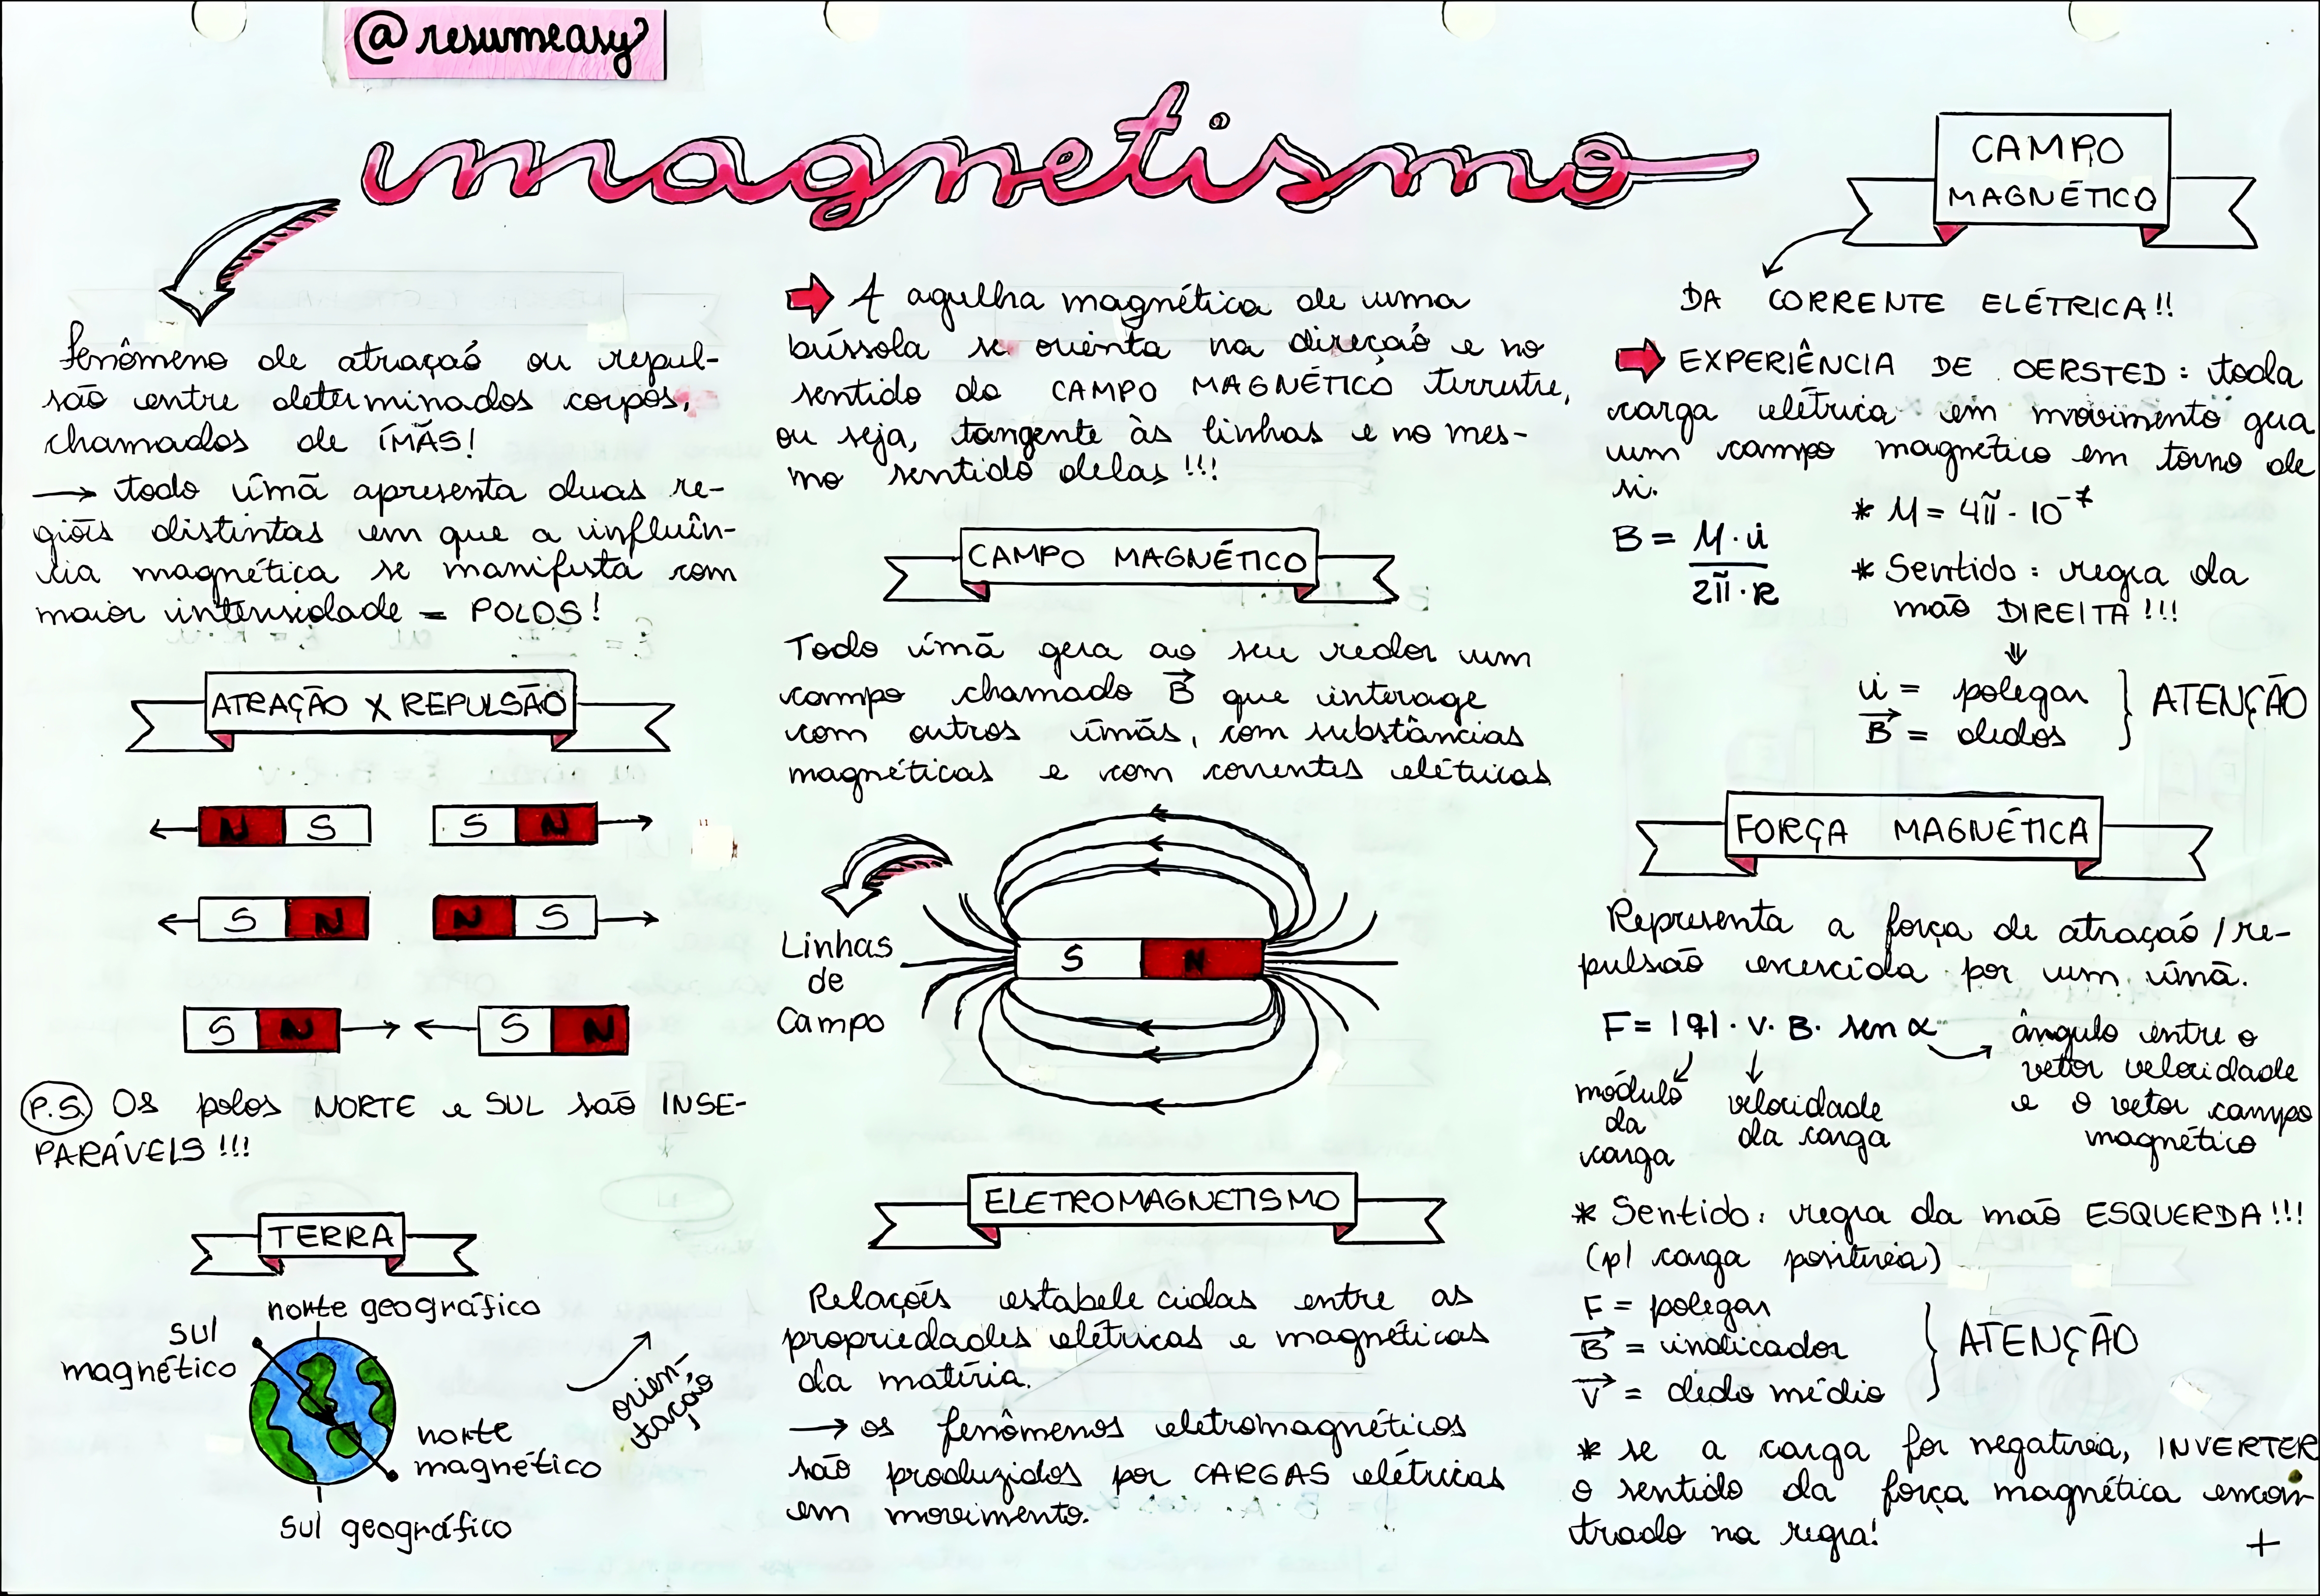 @resumeasy
magnetismo
fenômeno de atração ou repul-
são entre determinados corpos,
chamados de ÍMÃS!
→ todo ímã apresenta duas re-
giões distintas em que a influên-
cia magnética se manifesta com
maior intensidade = POLOS!
ATRAÇÃO X REPULSÃO
N S S N
S N N S
S N S N
P.S. OS polos NORTE e SUL são INSE-
PARÁVEIS !!!
TERRA
norte geográfico
sul
magnético
norte
magnético
sul geográfico
orien-
tação
A agulha magnética de uma
bússola se orienta na direção e no
sentido do CAMPO MAGNÉTICO terrestre,
ou seja, tangente às linhas e no mes-
mo sentido delas !!!
CAMPO MAGNÉTICO
Todo ímã gera ao seu redor um
campo chamado B⃗ que interage
com outros ímãs, com substâncias
magnéticas e com correntes elétricas
Linhas
de
Campo
S N
ELETROMAGNETISMO
Relações estabelecidas entre as
propriedades elétricas e magnéticas
da matéria.
→ os fenômenos eletromagnéticos
são produzidos por CARGAS elétricas
em movimento.
CAMPO
MAGNÉTICO
DA CORRENTE ELÉTRICA!!
EXPERIÊNCIA DE OERSTED: toda
carga elétrica em movimento gera
um campo magnético em torno de
si.
B = M·i / 2π·R
* M = 4π · 10⁻⁷
* Sentido: regra da
mão DIREITA !!!
i = polegar
B⃗ = dedos
} ATENÇÃO
FORÇA MAGNÉTICA
Representa a força de atração / re-
pulsão exercida por um ímã.
F = |q| · v · B · sen α
módulo
da
carga
velocidade
da carga
ângulo entre o
vetor velocidade
e o vetor campo
magnético
* Sentido: regra da mão ESQUERDA !!!
(p/ carga positiva)
F = polegar
B⃗ = indicador
V⃗ = dedo médio
} ATENÇÃO
* se a carga for negativa, INVERTER
o sentido da força magnética encon-
trado na regra!
+